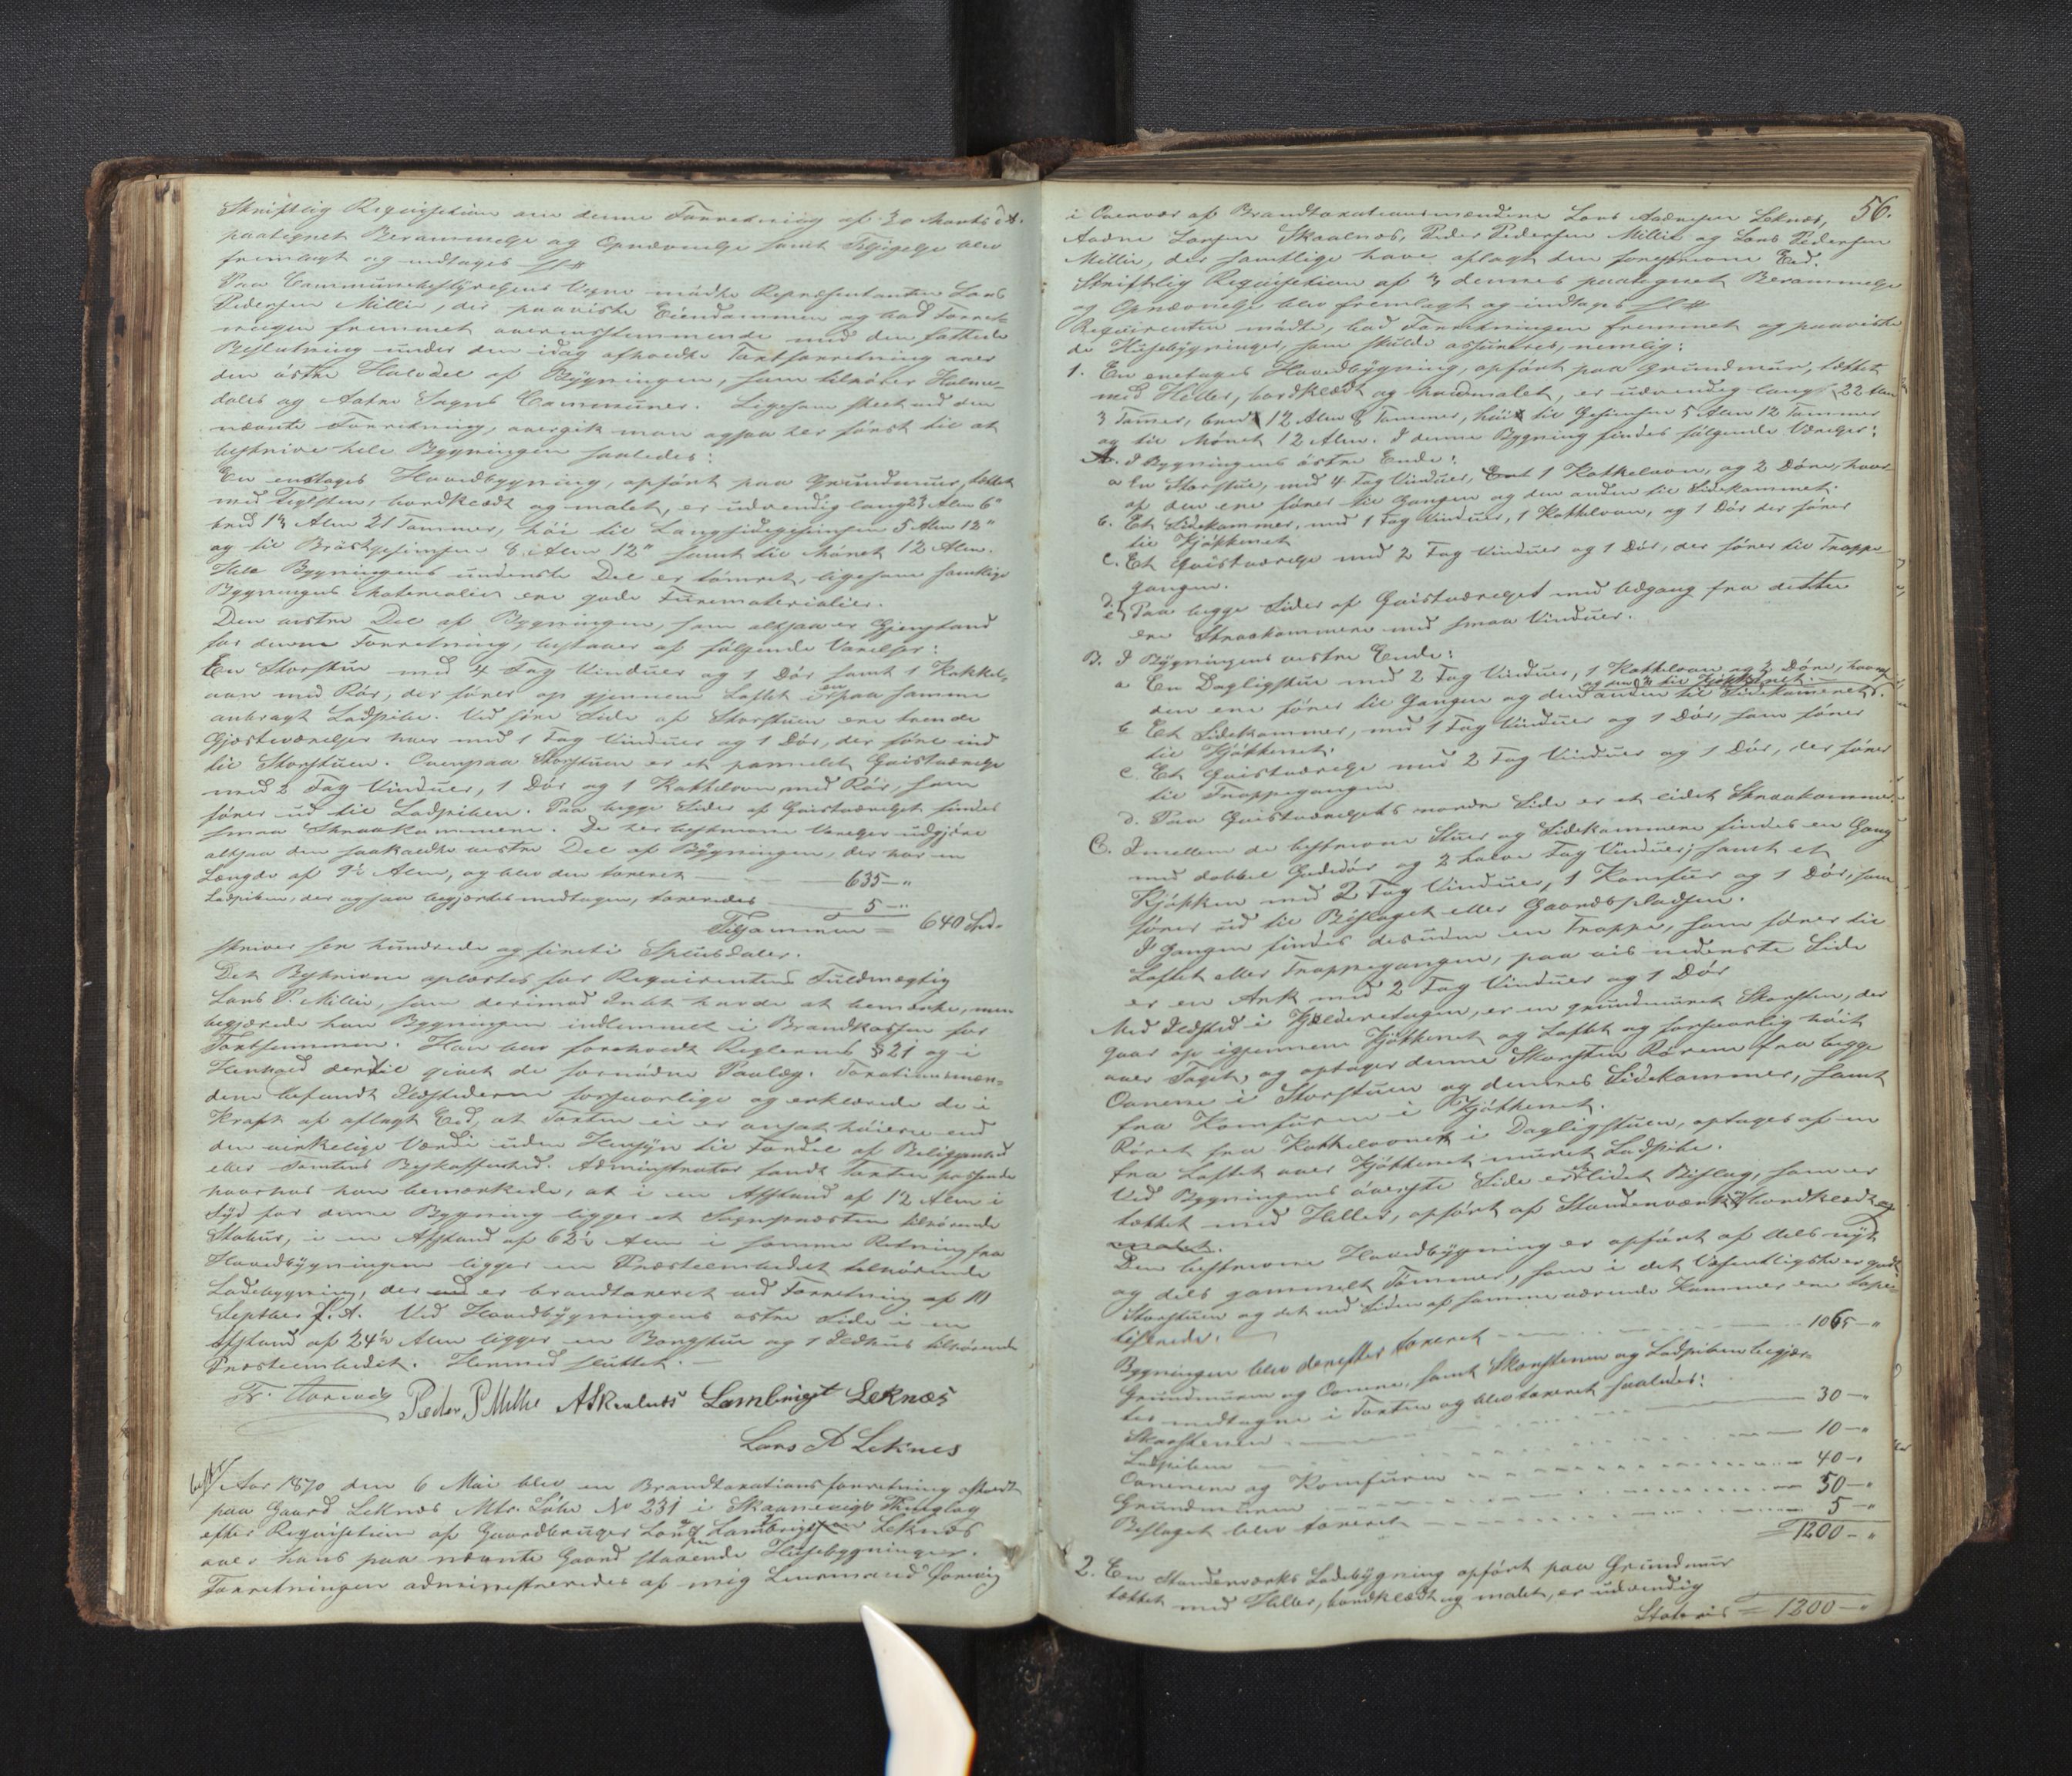 Skriftlig Requisition om denne Forretning af 30 Marts d. A.
paategnet Berammelse og Opnævnelse samt Tilsigelse blev
fremlagt og indtages
Paa Communebestyrelsens Vegne mødte Repræsentanten Lars
Pedersen Millie, der paaviste Eiendommen og bad Forret-
ningen fremmet overensstemmende med den fattede
Beslutning under den idag afholdte Taxtforretning over
den østre Halvdel af Bygningen, som tilhører Holme-
dals og Aakre Sogns Communer. Ligesom skeet ved den
nævnte Forretning, overgik man ogsaa her først til at
beskrive hele Bygningen saaledes:
En enetages Hovedbygning, opført paa Grundmuur, tættet
med Teglsten, bordklædt og malet, er udvendig lang 23 Alen 6"
bred 13 Alen 21 Tommer, høi til Langsidegesimsen 5 Alen 12"
og til Brøstgesimsen 8 Alen 12" samt til Mønet 12 Alen.
Hele Bygningens underste Del er tømret, ligesom samtlige
Bygningens Materialier ere gode Furematerialier.
Den vestre Del af Bygningen, som altsaa er Gjenstand
for denne Forretning, bestaaer af følgende Værelser:
En Storstue med 4 Fag Vinduer og 1 Dør samt 1 Kakkel-
ovn med Rør, der fører op gjennem Loftet i en paa samme
anbragt Ladpibe. Ved søre Side af Storstuen ere tvende
Gjæsteværelser hver med 1 Fag Vinduer og 1 Dør, der føre ind
til Storstuen. Ovenpaa Storstuen er et panelet Qvistværelse
med 2 Fag Vinduer, 1 Dør og 1 Kakkelovn med Rør, som
fører ud til Ladpiben. Paa begge Sider af Qvistværelset findes
smaa Skraakammere. De her beskrevne Værelser udgjøre
altsaa den saakaldte vestre Del af Bygningen, der har en
Længde af 9½ Alen, og blev den taxeret 635 - "
Ladpiben, der ogsaa begjærtes medtagen, taxeredes 5 - "
Tilsammen = 640 Spd.
skriver sex hundrede og fireti Speciedaler.
Det Beskrevne oplæstes for Requirentens Fuldmægtig
Lars P. Millie, som derimod Intet havde at bemærke, men
begjærede han Bygningen indlemmet i Brandkassen for
Taxtsummen. Han blev foreholdt Reglernes § 21 og i
Henhold dertil givet de fornødne Paalæg. Taxationsmæn-
dene befandt Ildstederne forsvarlige og erklærede de i
Kraft af aflagt Eed, at Taxten ei er ansat høiere end
den virkelige Værdi uden Hensyn til Fordel af Beliggenhed
eller Tomtens Beskaffenhed. Administrator fandt Taxten passende
hvorhos han bemærkede, at i en Afstand af 12 Alen i
Syd for denne Bygning ligger et Sognepræsten tilhørende
Stabur, i en Afstand af 62½ Alen i samme Retning fra
Hovedbygningen ligger en Præsteembedet tilhørende
Ladebygning, der er brandtaxeret ved Forretning af 10
Septber f. A. Ved Hovedbygningens østre Side i en
Afstand af 24½ Alen ligger en Borgstue og 1 Ildhus tilhørende
Præsteembedet. Hermed sluttet.
Peder P Millie A Skaalnes Lambrigt Leknæs
Lars A Leknes
Aar 1870 den 6 Mai blev en Brandtaxationsforretning afholdt
paa Gaard Leknæs Mtr. Løbe No 231 i Skaanevigs Thinglag
efter Requisition af Gaardbruger Lambrigt Leknæs
over hans paa nævnte Gaard staaende Husebygninger.
Forretningen administreredes af mig Lensmand
56.
i Overvær af Brandtaxationsmændene Lars Aadnesen Leknæs,
Aadne Larsen Skaalnæs, Peder Pedersen Millie og Lars Pedersen
Millie, der samtlige have aflagt den foreskrevne Eed.
Skriftlig Requisition af 3 dennes paategnet Berammelse
og Opnævnelse blev fremlagt og indtages
Requirenten mødte, bad Forretningen fremmet og paaviste
de Husebygninger, som skulde assureres, nemlig:
1. En enetages Hovedbygning, opført paa Grundmur, tættet
med Heller, bordklædt og hvidmalet, er udvendig lang 22 Alen
3 Tommer, bred 12 Alen 8 Tommer, høi til Gesimsen 5 Alen 12 Tommer
og til Mønet 12 Alen. I denne Bygning findes følgende Værelser:
A. I Bygningens østre Ende:
a En Storstue, med 4 Fag Vinduer, 1 Kakkelovn, og 2 Døre, hvor-
af den ene fører til Gangen og den anden til Sidekammeret.
b. Et Sidekammer, med 1 Fag Vinduer, 1 Kakkelovn, og 1 Dør der fører
til Kjøkkenet
c. Et Qvistværelse med 2 Fag Vinduer og 1 Dør, der fører til Trappe-
gangen.
d.
e. Paa begge Sider af Qvistværelset med Udgang fra dette
ere Skraakammere med smaa Vinduer.
B. I Bygningens vestre Ende:
a En Dagligstue med 2 Fag Vinduer, 1 Kakkelovn og 3 Døre, hvoraf
og den 3die til Kjøkkenet.
den ene fører til Gangen og den anden til Sidekammeret
b Et Sidekammer, med 1 Fag Vinduer og 1 Dør, som fører
til Kjøkkenet.
c. Et Qvistværelse med 2 Fag Vinduer og 1 Dør, der fører
til Trappegangen
d. Paa Qvistværelsets nordre Side er et lidet Skraakammer.
C. Imellem de beskrevne Stuer og Sidekammere findes en Gang
med dobbel Gadedør og 2 halve Fag Vinduer, samt et
Kjøkken med 2 Fag Vinduer, 1 Komfur og 1 Dør, som
fører ud til Bislaget eller Gaardspladsen.
I Gangen findes desuden en Trappe, som fører til
Loftet eller Trappegangen, paa hvis nederste Side
er en Ark med 2 Fag Vinduer og 1 Dør
Med Ildsted i Kjælderetagen, er en grundmuret Skorsten, der
gaar op igjennem Kjøkkenet og Loftet og forsvarlig høit
over Taget, og optager denne Skorsten Rørene fra begge
Ovnene i Storstuen og dennes Sidekammer, samt
fra Komfuren i Kjøkkenet.
Røret fra Kakkelovnen i Dagligstuen, optages af en
fra Loftet over Kjøkkenet muret Ladpibe.
Ved Bygningens øverste Side er et lidet Bislag, som er
tættet med Heller, opført af Stenderværk, bordklædt og
malet.
Den beskrevne Hovedbygning er opført af dels nyt
og dels gammelt Tømmer, som i det Væsentligste er godt.
Storstuen og det ved Siden af samme værende Kammer ere tape-
tserede.
Bygningen blev derefter taxeret 1065 - "
Grundmuren og Ovnene, samt Skorstenen og Ladpiben begjær-
tes medtagne i Taxten og blev taxeret saaledes:
Skorstenen 30 - "
Ladpiben 10 - "
Ovnene og Komfuren 40 - "
Grundmuren 50 - "
Bislaget blev taxeret 5 - "
= 1200 - "
2. En Stenderværks Ladebygning opført paa Grundmuur
tættet med Heller, bordklædt og malet, er udvendig
Lateris = 1200 - "